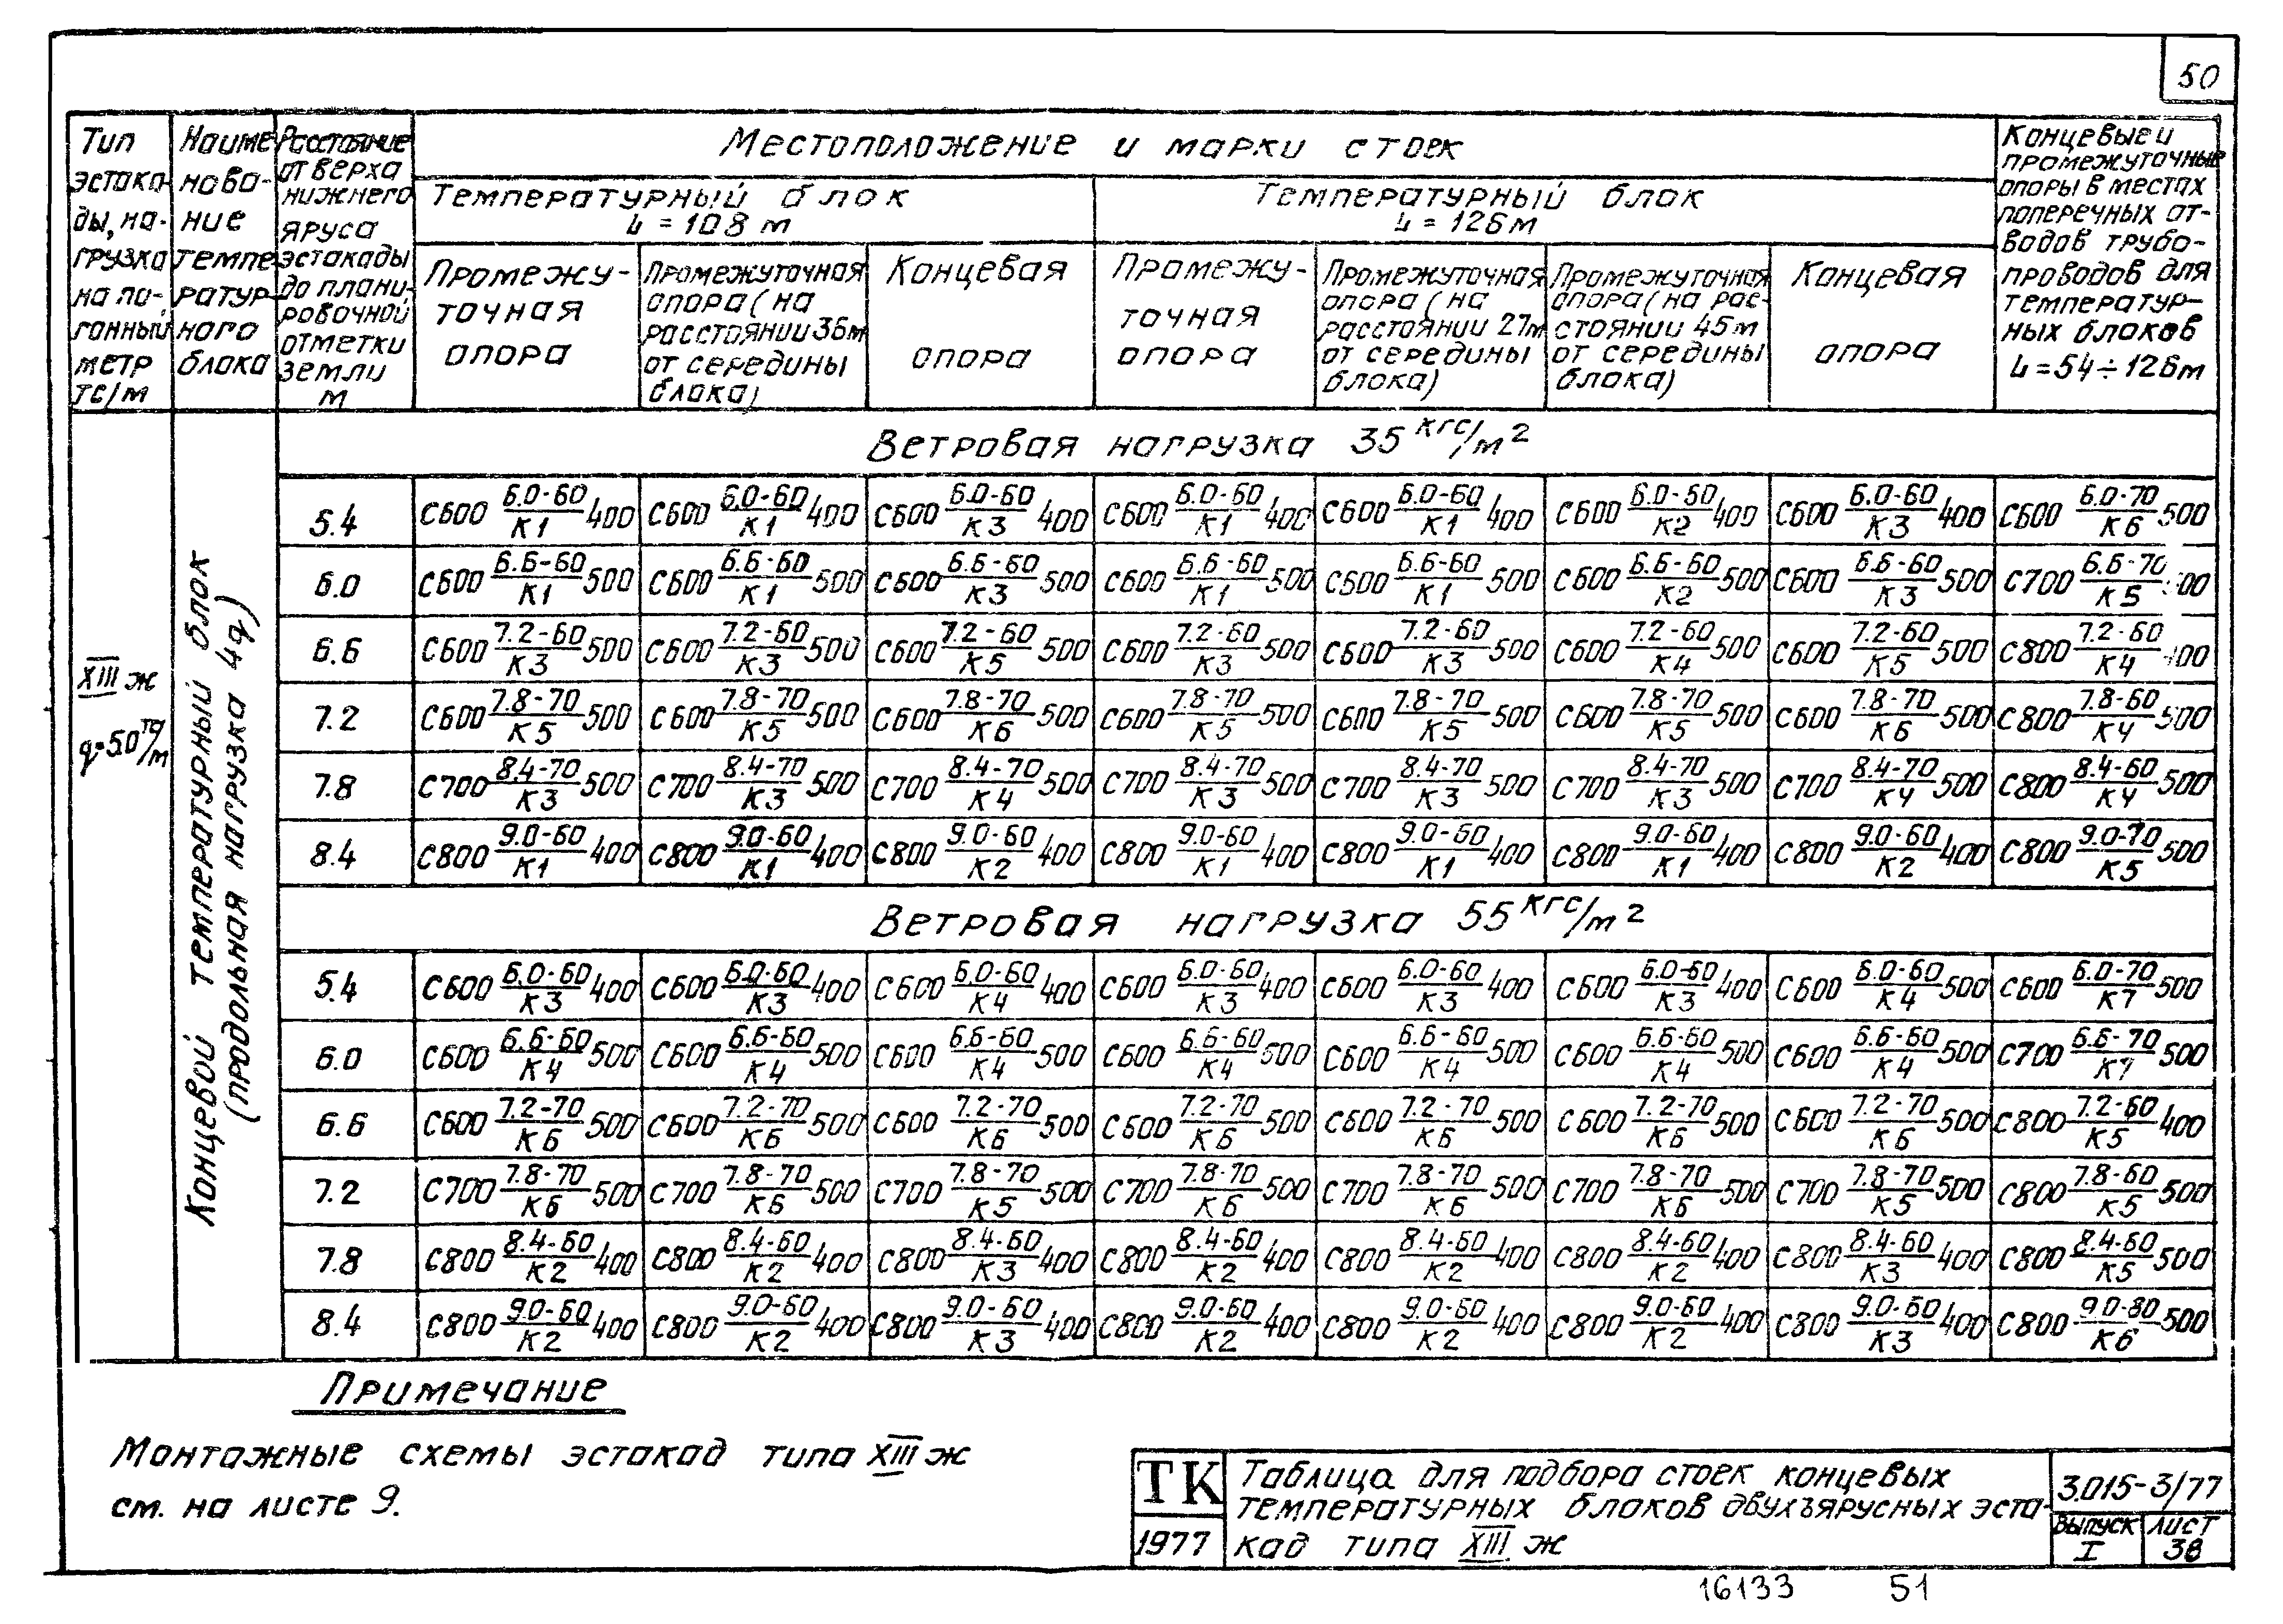 50
Тип эстакады, нагрузка на погонный метр тс/м
Наименование температурного блока
Расстояние от верха нижнего яруса эстакады до планировочной отметки земли м
Местоположение и марки стоек
Температурный блок L = 108 м
Температурный блок L = 126 м
Концевые и промежуточные опоры в местах поперечных отводов трубопроводов для температурных блоков L = 54 ÷ 126 м
Промежуточная опора
Промежуточная опора (на расстоянии 36 м от середины блока)
Концевая опора
Промежуточная опора
Промежуточная опора (на расстоянии 27 м от середины блока)
Промежуточная опора (на расстоянии 45 м от середины блока)
Концевая опора
XIII ж
q=5.0 тс/м
Концевой температурный блок (продольная нагрузка 4q)
Ветровая нагрузка 35 кгс/м²
5.4 С600 6.0-60/К1 400 С600 6.0-60/К1 400 С600 6.0-60/К3 400 С600 6.0-60/К1 400 С600 6.0-60/К1 400 С600 6.0-60/К2 400 С600 6.0-60/К3 400 С600 6.0-70/К6 500
6.0 С600 6.6-60/К1 500 С600 6.6-60/К1 500 С600 6.6-60/К3 500 С600 6.6-60/К1 500 С600 6.6-60/К1 500 С600 6.6-60/К2 500 С600 6.6-60/К3 500 С700 6.6-70/К5
6.6 С600 7.2-60/К3 500 С600 7.2-60/К3 500 С600 7.2-60/К5 500 С600 7.2-60/К3 500 С600 7.2-60/К3 500 С600 7.2-60/К4 500 С600 7.2-60/К5 500 С800 7.2-60/К4 400
7.2 С600 7.8-70/К5 500 С600 7.8-70/К5 500 С600 7.8-70/К6 500 С600 7.8-70/К5 500 С600 7.8-70/К5 500 С600 7.8-70/К5 500 С600 7.8-70/К6 500 С800 7.8-60/К4 500
7.8 С700 8.4-70/К3 500 С700 8.4-70/К3 500 С700 8.4-70/К4 500 С700 8.4-70/К3 500 С700 8.4-70/К3 500 С700 8.4-70/К3 500 С700 8.4-70/К4 500 С800 8.4-60/К4 500
8.4 С800 9.0-60/К1 400 С800 9.0-60/К1 400 С800 9.0-60/К2 400 С800 9.0-60/К1 400 С800 9.0-60/К1 400 С800 9.0-60/К1 400 С800 9.0-60/К2 400 С800 9.0-70/К5 500
Ветровая нагрузка 55 кгс/м²
5.4 С600 6.0-60/К3 400 С600 6.0-60/К3 400 С600 6.0-60/К4 400 С600 6.0-60/К3 400 С600 6.0-60/К3 400 С600 6.0-60/К3 400 С600 6.0-60/К4 500 С600 6.0-70/К7 500
6.0 С600 6.6-60/К4 500 С600 6.6-60/К4 500 С600 6.6-60/К4 500 С600 6.6-60/К4 500 С600 6.6-60/К4 500 С600 6.6-60/К4 500 С600 6.6-60/К4 500 С700 6.6-70/К7 500
6.6 С600 7.2-70/К6 500 С600 7.2-70/К6 500 С600 7.2-70/К6 500 С600 7.2-70/К6 500 С600 7.2-70/К6 500 С600 7.2-70/К6 500 С600 7.2-70/К6 500 С800 7.2-60/К5 400
7.2 С700 7.8-70/К6 500 С700 7.8-70/К6 500 С700 7.8-70/К5 500 С700 7.8-70/К6 500 С700 7.8-70/К6 500 С700 7.8-70/К6 500 С700 7.8-70/К5 500 С800 7.8-60/К5 500
7.8 С800 8.4-60/К2 400 С800 8.4-60/К2 400 С800 8.4-60/К3 400 С800 8.4-60/К2 400 С800 8.4-60/К2 400 С800 8.4-60/К2 400 С800 8.4-60/К3 400 С800 8.4-60/К5 500
8.4 С800 9.0-60/К2 400 С800 9.0-60/К2 400 С800 9.0-60/К3 400 С800 9.0-60/К2 400 С800 9.0-60/К2 400 С800 9.0-60/К2 400 С800 9.0-60/К3 400 С800 9.0-80/К6 500
Примечание
Монтажные схемы эстакад типа XIII ж
см. на листе 9.
ТК
1977
Таблица для подбора стоек концевых
температурных блоков двухъярусных эста-
кад типа XIII ж
3.015-3/77
Выпуск I
Лист 38
16133 51